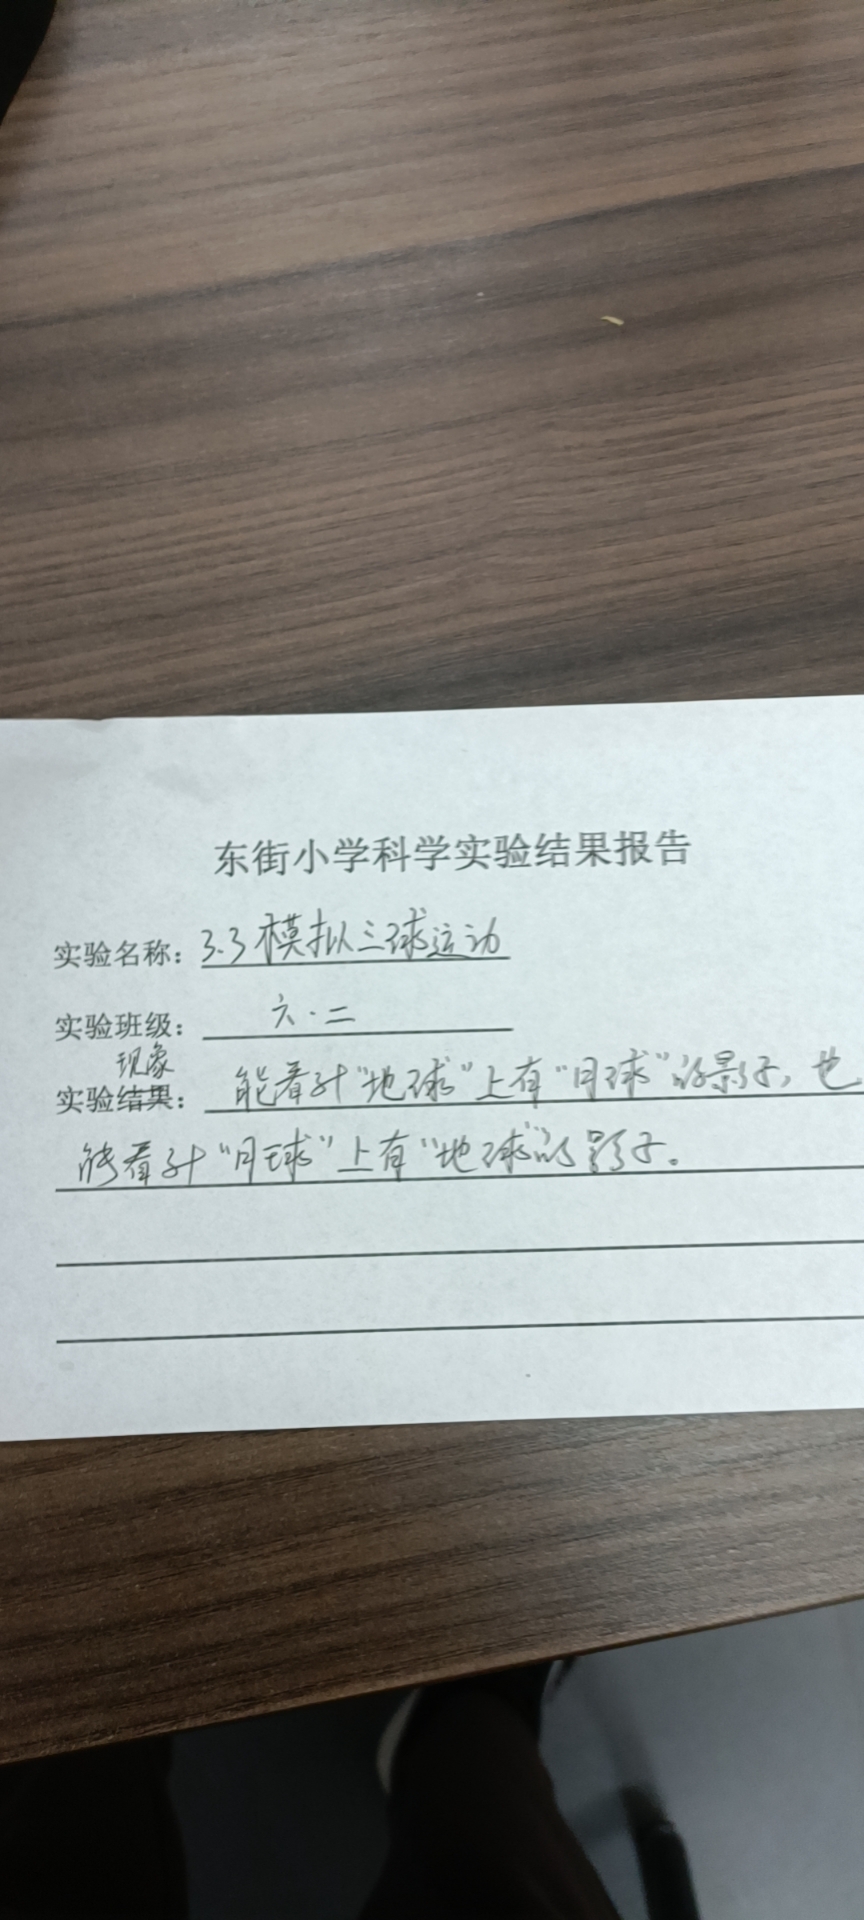 东街小学科学实验结果报告
实验名称：3.3模拟三球运动
实验班级：六·二
现象
实验结果：能看到“地球”上有“月球”的影子，也
能看到“月球”上有“地球”的影子。